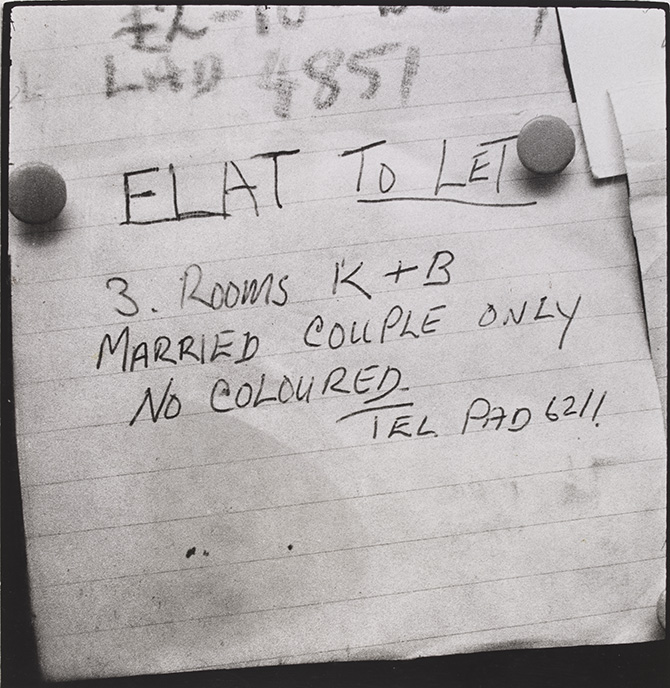 £2-10
LAD 4851
FLAT TO LET
3. ROOMS K + B
MARRIED COUPLE ONLY
NO COLOURED
TEL. PAD 6211